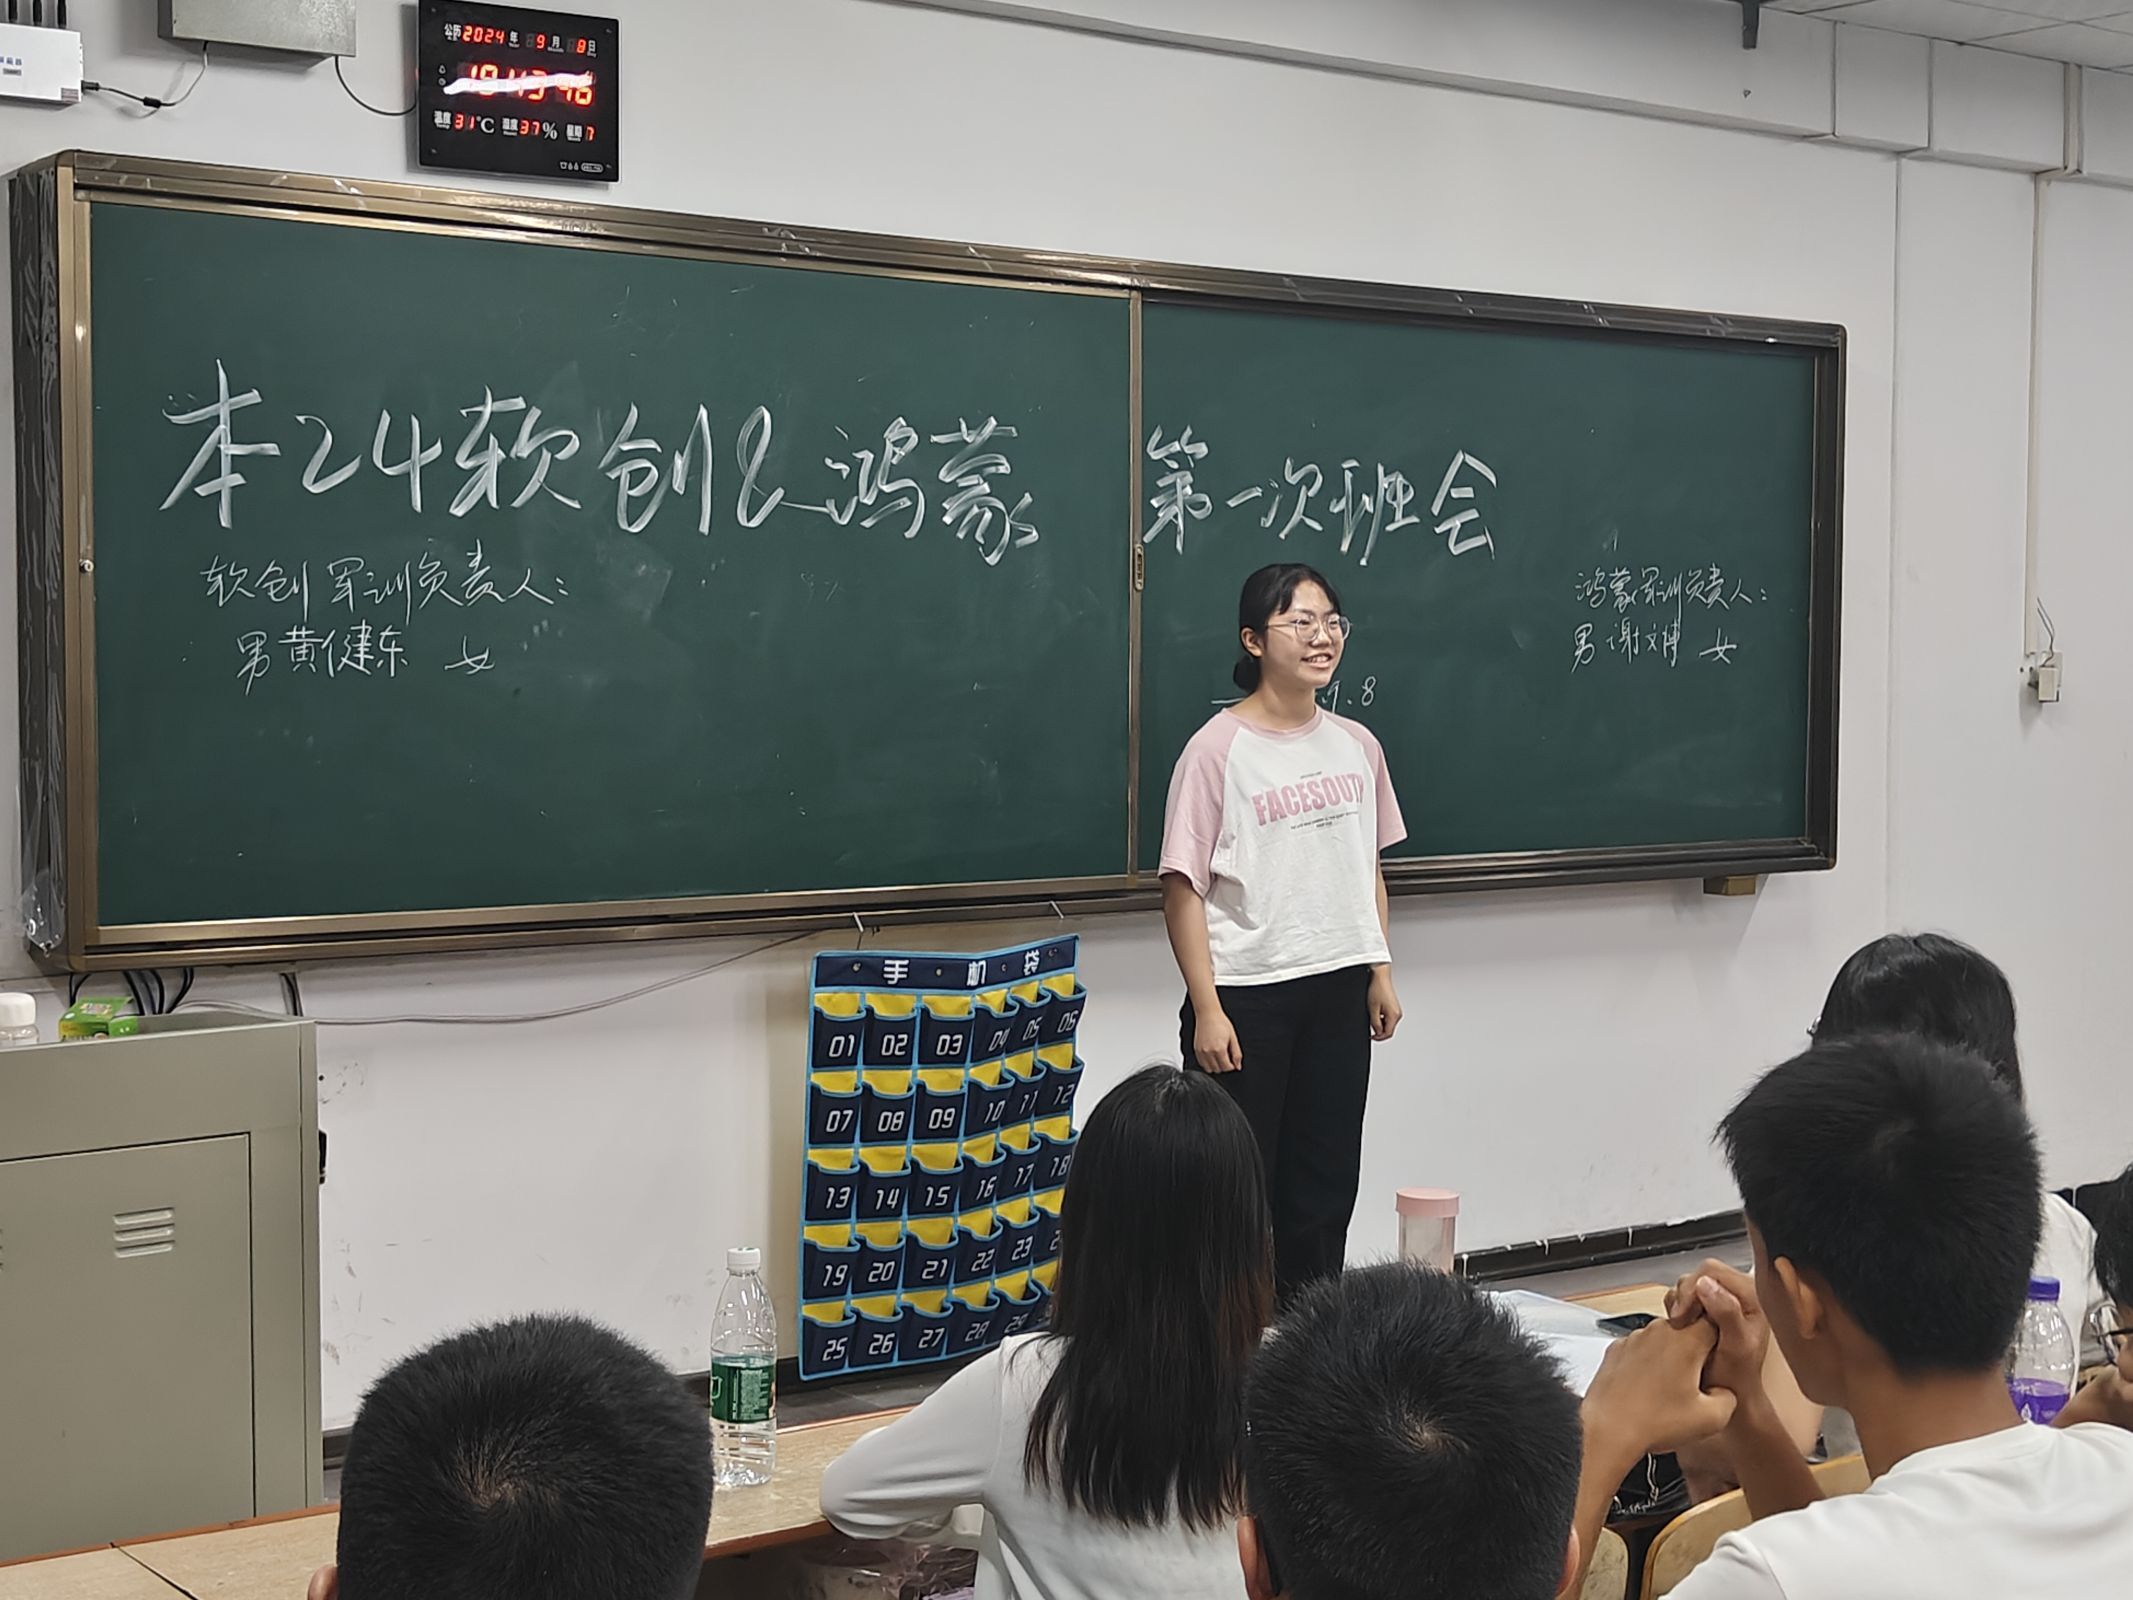 公历 2024 年 9 月 8 日
温度 31℃ 湿度 37% 星期 7
本24软创&鸿蒙 第一次班会
软创军训负责人:
男 黄健东 女
鸿蒙军训负责人:
男 谢文博 女
9.8
FACESOUTH
手机袋
01 02 03 04 05 06
07 08 09 10 11 12
13 14 15 16 17 18
19 20 21 22 23
25 26 27 28 29